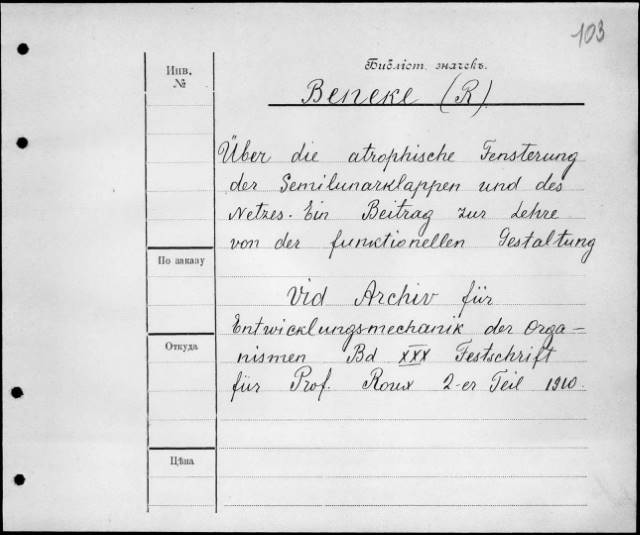 103
Инв. №
Библіот. значекъ.
Beneke (R).
Über die atrophische Fensterung
der Semilunarklappen und des
Netzes. Ein Beitrag zur Lehre
von der funktionellen Gestaltung
По заказу
Vid Archiv für
Entwicklungsmechanik der Orga-
Откуда
nismen Bd XXX Festschrift
für Prof. Roux 2-er Teil 1910.
Цѣна